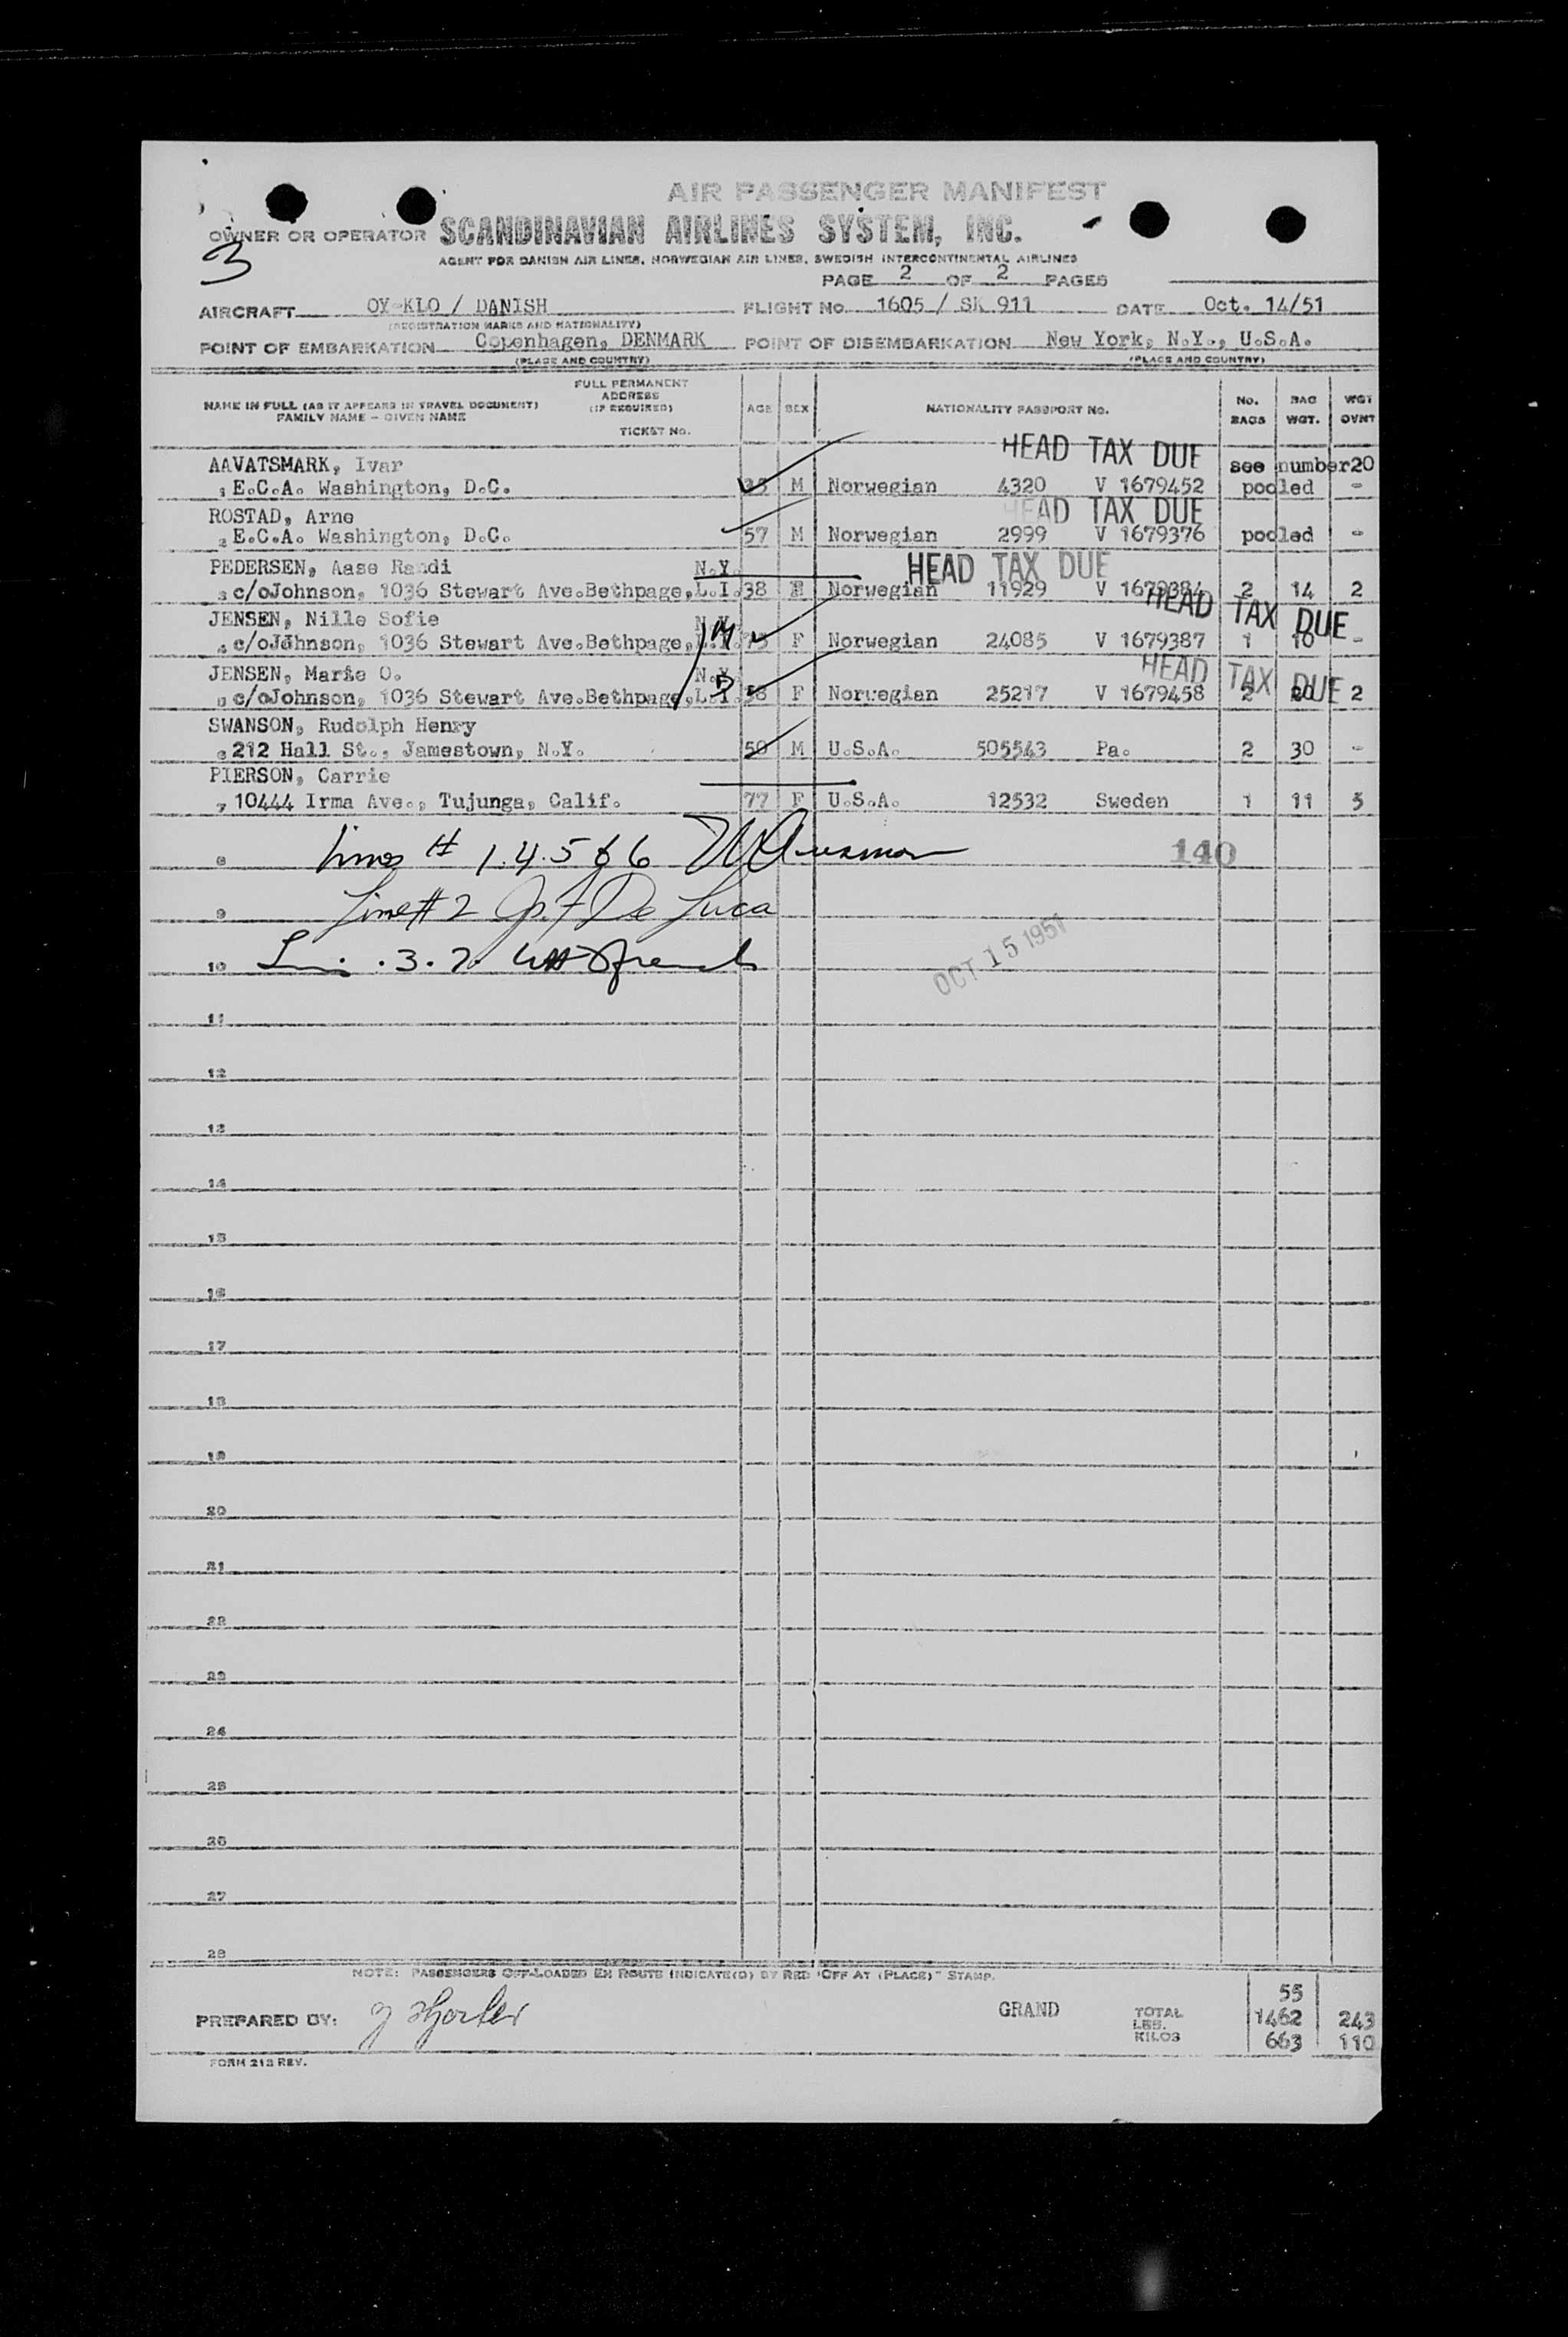 AIR PASSENGER MANIFEST
OWNER OR OPERATOR SCANDINAVIAN AIRLINES SYSTEM, INC.
3
AGENT FOR DANISH AIR LINES, NORWEGIAN AIR LINES, SWEDISH INTERCONTINENTAL AIRLINES
PAGE 2 OF 2 PAGES
AIRCRAFT OY-KLO / DANISH FLIGHT NO. 1605 / SK 911 DATE Oct. 14/51
(REGISTRATION MARKS AND NATIONALITY)
POINT OF EMBARKATION Copenhagen, DENMARK POINT OF DISEMBARKATION New York, N.Y., U.S.A.
(PLACE AND COUNTRY) (PLACE AND COUNTRY)
NAME IN FULL (AS IT APPEARS IN TRAVEL DOCUMENT) FAMILY NAME – GIVEN NAME FULL PERMANENT ADDRESS (IF REQUIRED) TICKET NO. AGE SEX NATIONALITY PASSPORT NO. NO. BAGS BAG WGT. WGT OVWT
HEAD TAX DUE
AAVATSMARK, Ivar see number 20
1 E.C.A. Washington, D.C. M Norwegian 4320 V 1679452 pooled -
HEAD TAX DUE
ROSTAD, Arne
2 E.C.A. Washington, D.C. 57 M Norwegian 2999 V 1679376 pooled -
HEAD TAX DUE
PEDERSEN, Aase Randi N.Y.
3 c/oJohnson, 1036 Stewart Ave.Bethpage,L.I. 38 F Norwegian 11929 V 1679384 2 14 2
HEAD TAX DUE
JENSEN, Nille Sofie N.Y.
4 c/oJohnson, 1036 Stewart Ave.Bethpage,L.I. 75 F Norwegian 24085 V 1679387 1 10 -
HEAD TAX DUE
JENSEN, Marie O. N.Y.
5 c/oJohnson, 1036 Stewart Ave.Bethpage,L.I. 58 F Norwegian 25217 V 1679458 2 20 2
SWANSON, Rudolph Henry
6 212 Hall St., Jamestown, N.Y. 50 M U.S.A. 505543 Pa. 2 30 -
PIERSON, Carrie
7 10444 Irma Ave., Tujunga, Calif. 77 F U.S.A. 12532 Sweden 1 11 5
8 Lines # 1.4.5 & 6 140
9 Line # 2 De Luca
10 3. 7.
OCT 15 1951
11
12
13
14
15
16
17
18
19
20
21
22
23
24
25
26
27
28
NOTE: PASSENGERS OFF-LOADED EN ROUTE INDICATE(D) BY RED "OFF AT (PLACE)" STAMP.
55
PREPARED BY: GRAND TOTAL
LBS. 1462 243
KILOS 663 110
FORM 213 REV.